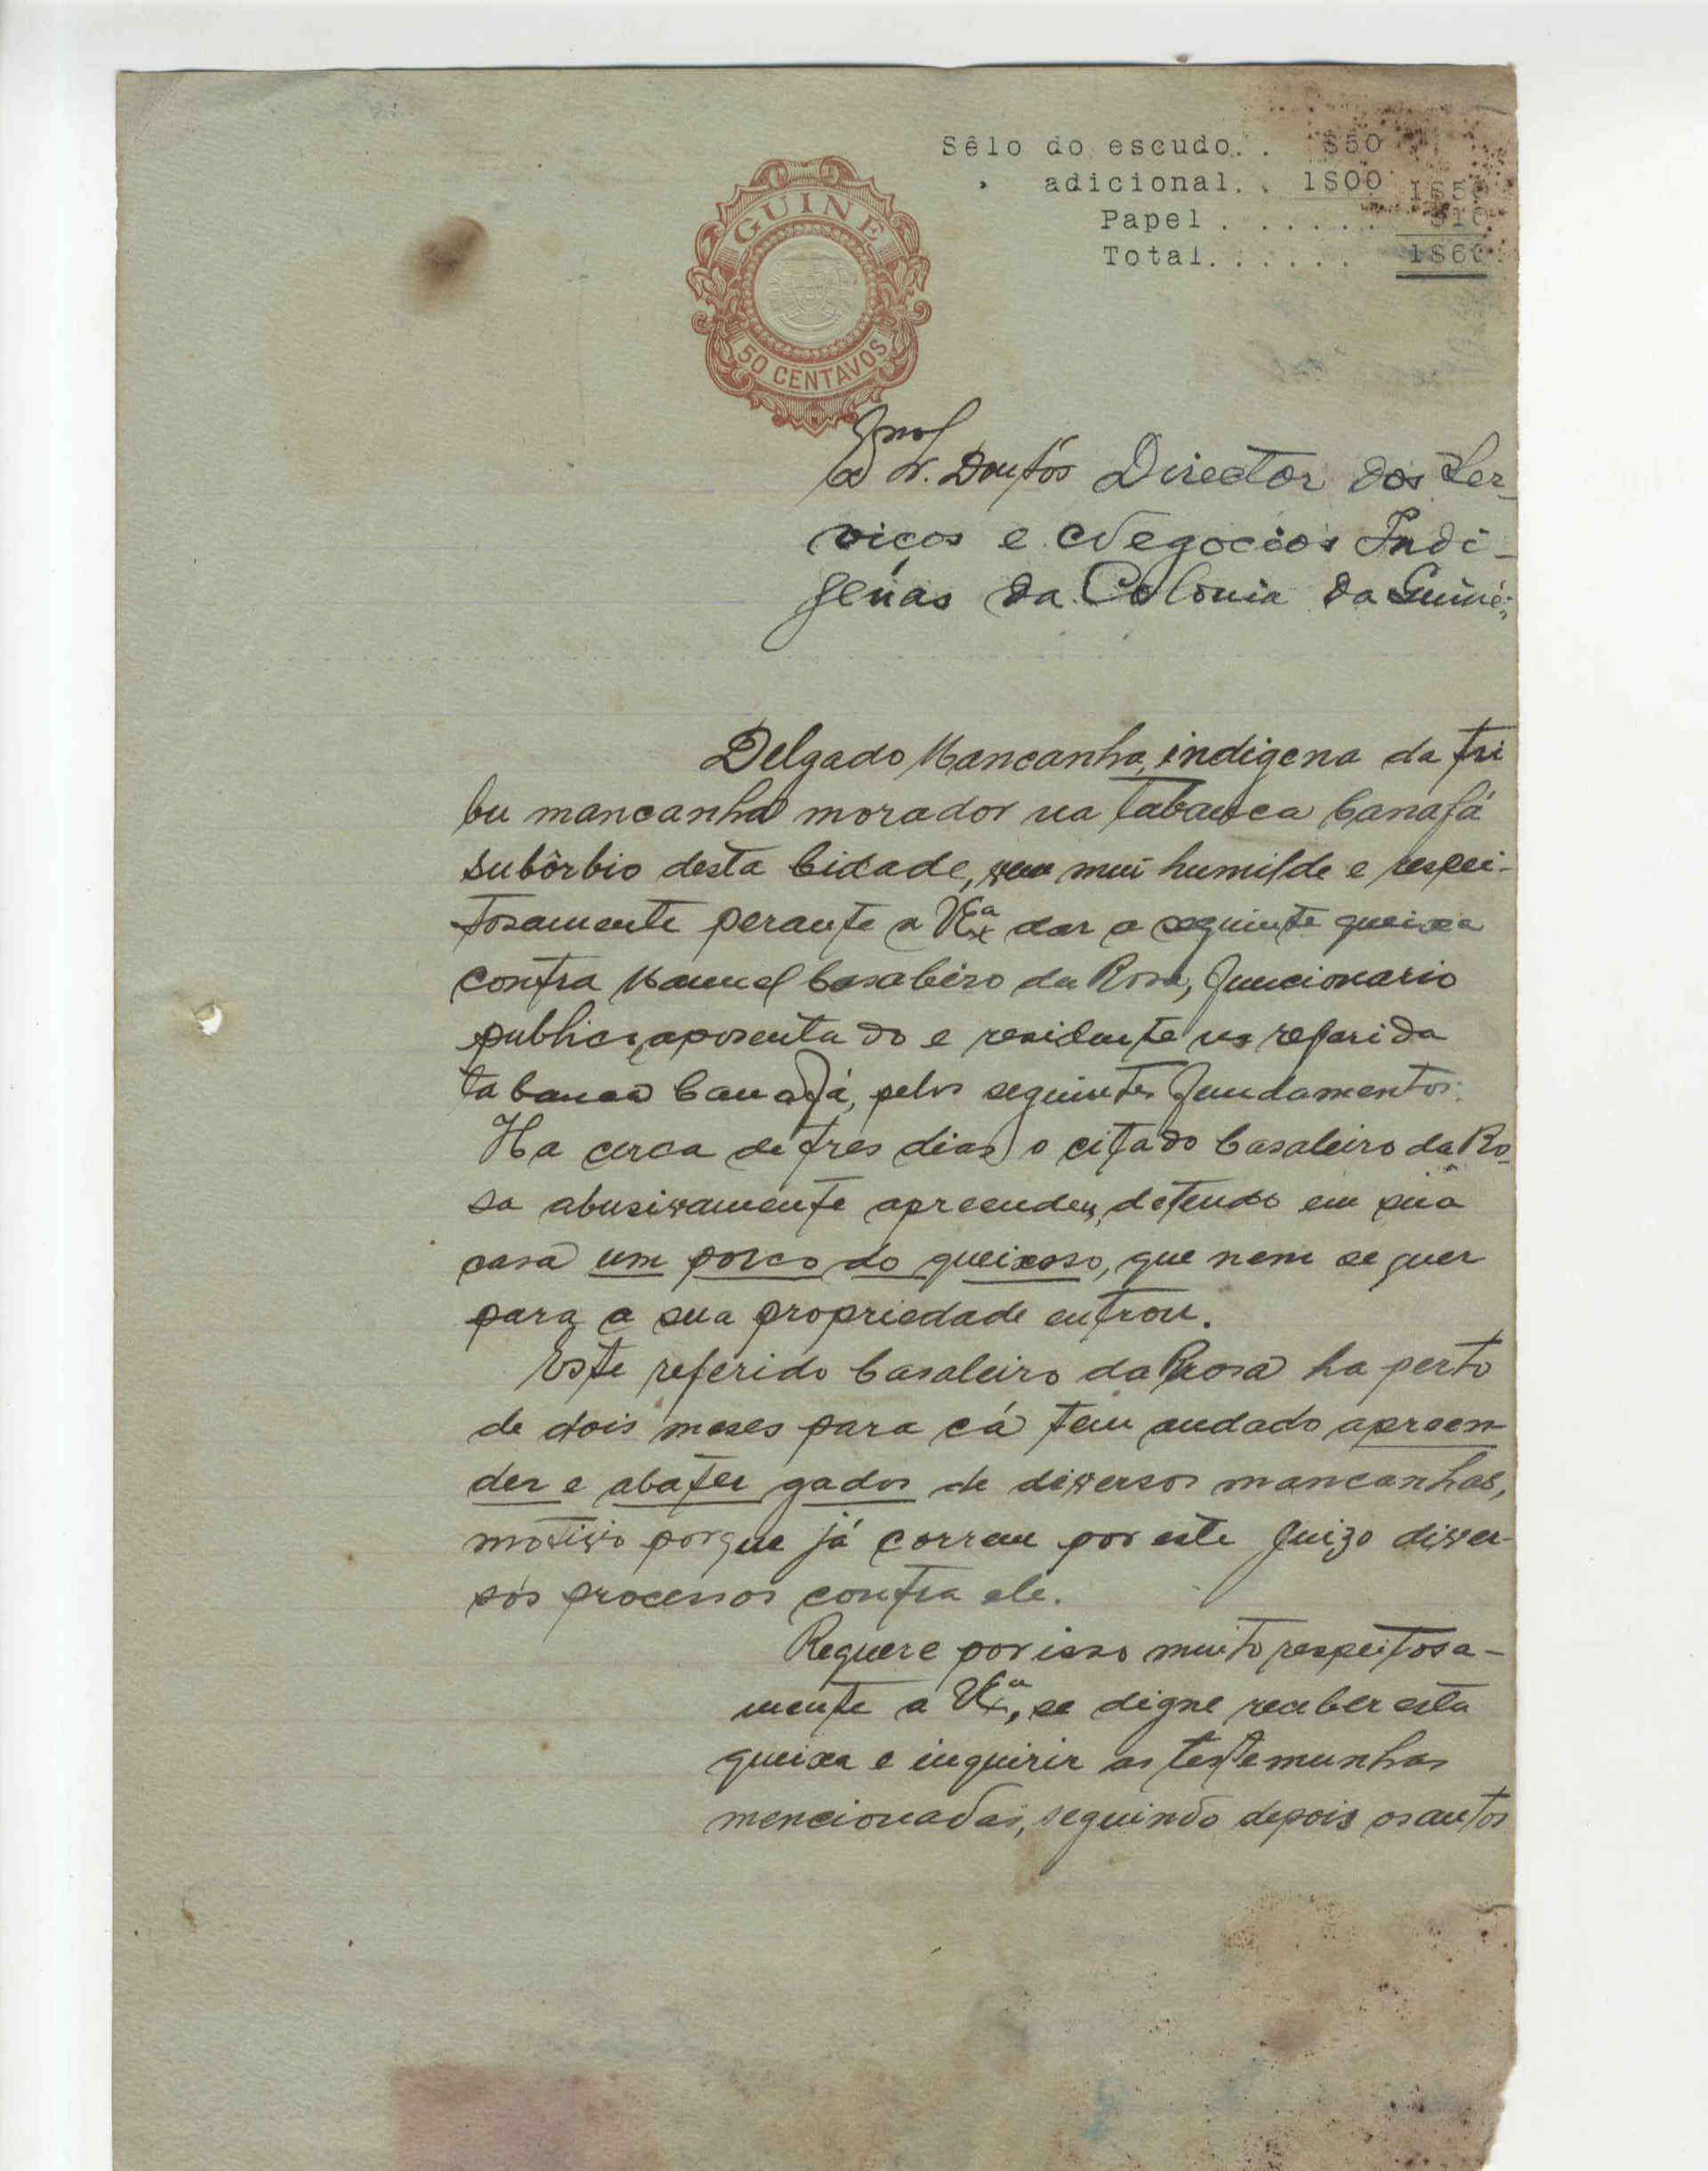 Sêlo do escudo. . $50
" adicional. . 1$00 1$50
Papel . . . . . . $10
Total. . . . . . 1$60
GUINÉ
50 CENTAVOS
Director dos Ser-
viços e Negocios Indi-
genas da Colonia da Guiné:
Delgado Mancanha, indigena da tri
bu mancanha morador na tabanca Canafá
subôrbio desta Cidade, vem mui humilde e respei-
tosamente perante a V. Ex.ª dar a seguinte queixa
contra Manuel Casaleiro da Rosa, funcionario
publico, aposentado e residente na referida
tabanca Canafá, pelos seguintes fundamentos:
Ha cerca de tres dias o citado Casaleiro da Ro-
sa abusivamente apreendeu, detendo em sua
casa um porco do queixoso, que nem sequer
para a sua propriedade entrou.
Este referido Casaleiro da Rosa ha perto
de dois meses para cá tem andado apreen-
der e abater gados de diversos mancanhas,
motivo porque já correu por este Juizo diver-
sos processos contra ele.
Requere por isso muito respeitosa-
mente a V. Ex.ª, se digne receber esta
queixa e inquirir as testemunhas
mencionadas, seguindo depois os autos